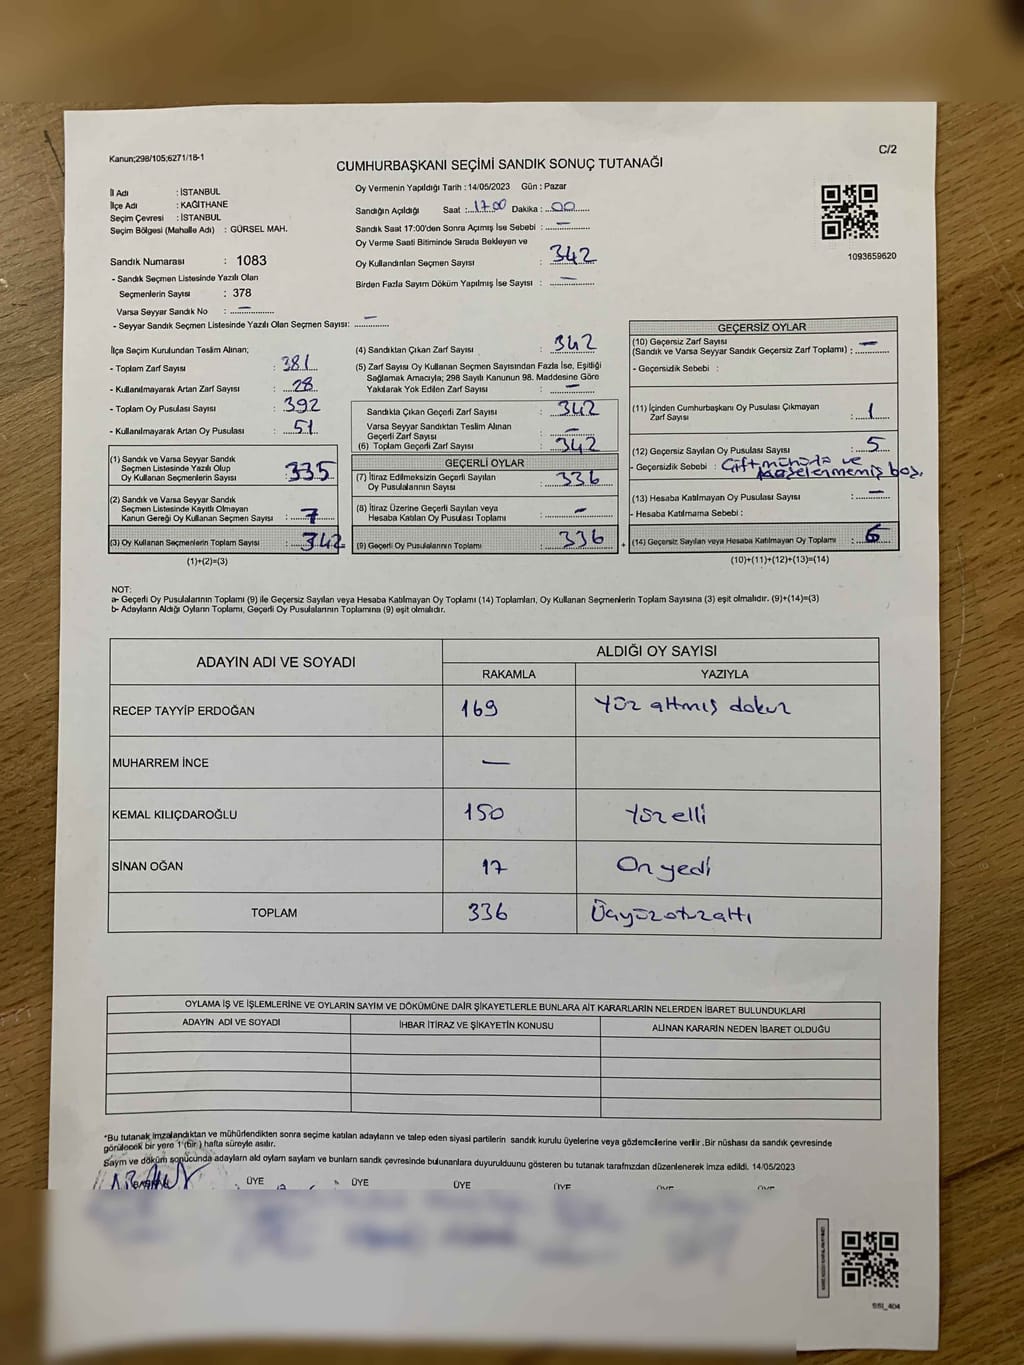 Kanun;298/105;6271/18-1
C/2
CUMHURBAŞKANI SEÇİMİ SANDIK SONUÇ TUTANAĞI
İl Adı : İSTANBUL
İlçe Adı : KAĞITHANE
Seçim Çevresi : İSTANBUL
Seçim Bölgesi (Mahalle Adı) : GÜRSEL MAH.
Sandık Numarası : 1083
- Sandık Seçmen Listesinde Yazılı Olan
Seçmenlerin Sayısı : 378
Varsa Seyyar Sandık No : —
- Seyyar Sandık Seçmen Listesinde Yazılı Olan Seçmen Sayısı: —
Oy Vermenin Yapıldığı Tarih : 14/05/2023 Gün : Pazar
Sandığın Açıldığı Saat : 17.00 Dakika : 00
Sandık Saat 17:00'den Sonra Açımış İse Sebebi : —
Oy Verme Saati Bitiminde Sırada Bekleyen ve
Oy Kullandırılan Seçmen Sayısı : 342
Birden Fazla Sayım Döküm Yapılmış İse Sayısı : —
1093659620
İlçe Seçim Kurulundan Teslim Alınan;
- Toplam Zarf Sayısı : 381
- Kullanılmayarak Artan Zarf Sayısı : 28
- Toplam Oy Pusulası Sayısı : 392
- Kullanılmayarak Artan Oy Pusulası : 51
(1) Sandık ve Varsa Seyyar Sandık
Seçmen Listesinde Yazılı Olup
Oy Kullanan Seçmenlerin Sayısı : 335
(2) Sandık ve Varsa Seyyar Sandık
Seçmen Listesinde Kayıtlı Olmayan
Kanun Gereği Oy Kullanan Seçmen Sayısı : 7
(3) Oy Kullanan Seçmenlerin Toplam Sayısı : 342
(1)+(2)=(3)
(4) Sandıktan Çıkan Zarf Sayısı : 342
(5) Zarf Sayısı Oy Kullanan Seçmen Sayısından Fazla İse, Eşitliği
Sağlamak Amacıyla; 298 Sayılı Kanunun 98. Maddesine Göre
Yakılarak Yok Edilen Zarf Sayısı : —
Sandıkta Çıkan Geçerli Zarf Sayısı : 342
Varsa Seyyar Sandıktan Teslim Alınan
Geçerli Zarf Sayısı : —
(6) Toplam Geçerli Zarf Sayısı : 342
GEÇERLİ OYLAR
(7) İtiraz Edilmeksizin Geçerli Sayılan
Oy Pusulalarının Sayısı : 336
(8) İtiraz Üzerine Geçerli Sayılan veya
Hesaba Katılan Oy Pusulası Toplamı : —
(9) Geçerli Oy Pusulalarının Toplamı : 336
+
GEÇERSİZ OYLAR
(10) Geçersiz Zarf Sayısı
(Sandık ve Varsa Seyyar Sandık Geçersiz Zarf Toplamı) : —
- Geçersizlik Sebebi :
(11) İçinden Cumhurbaşkanı Oy Pusulası Çıkmayan
Zarf Sayısı : 1
(12) Geçersiz Sayılan Oy Pusulası Sayısı : 5
- Geçersizlik Sebebi : Çift mühürlü ve boş.
(13) Hesaba Katılmayan Oy Pusulası Sayısı : —
- Hesaba Katılmama Sebebi :
(14) Geçersiz Sayılan veya Hesaba Katılmayan Oy Toplamı : 6
(10)+(11)+(12)+(13)=(14)
NOT:
a- Geçerli Oy Pusulalarının Toplamı (9) ile Geçersiz Sayılan veya Hesaba Katılmayan Oy Toplamı (14) Toplamları, Oy Kullanan Seçmenlerin Toplam Sayısına (3) eşit olmalıdır. (9)+(14)=(3)
b- Adayların Aldığı Oyların Toplamı, Geçerli Oy Pusulalarının Toplamına (9) eşit olmalıdır.
ADAYIN ADI VE SOYADI
ALDIĞI OY SAYISI
RAKAMLA YAZIYLA
RECEP TAYYİP ERDOĞAN 169 Yüz altmış dokuz
MUHARREM İNCE —
KEMAL KILIÇDAROĞLU 150 Yüz elli
SİNAN OĞAN 17 On yedi
TOPLAM 336 Üçyüzotuzaltı
OYLAMA İŞ VE İŞLEMLERİNE VE OYLARIN SAYIM VE DÖKÜMÜNE DAİR ŞİKAYETLERLE BUNLARA AİT KARARLARIN NELERDEN İBARET BULUNDUKLARI
ADAYIN ADI VE SOYADI İHBAR İTİRAZ VE ŞİKAYETİN KONUSU ALINAN KARARIN NEDEN İBARET OLDUĞU
*Bu tutanak imzalandıktan ve mühürlendikten sonra seçime katılan adayların ve talep eden siyasi partilerin sandık kurulu üyelerine veya gözlemcilerine verilir. Bir nüshası da sandık çevresinde
görülecek bir yere 1 (bir) hafta süreyle asılır.
Sayım ve döküm sonucunda adayların ald oyların sayları ve bunların sandk çevresinde bulunanlara duyurulduunu gösteren bu tutanak tarafmzdan düzenlenerek imza edildi. 14/05/2023
ÜYE ÜYE ÜYE ÜYE ÜYE ÜYE
SSI_404